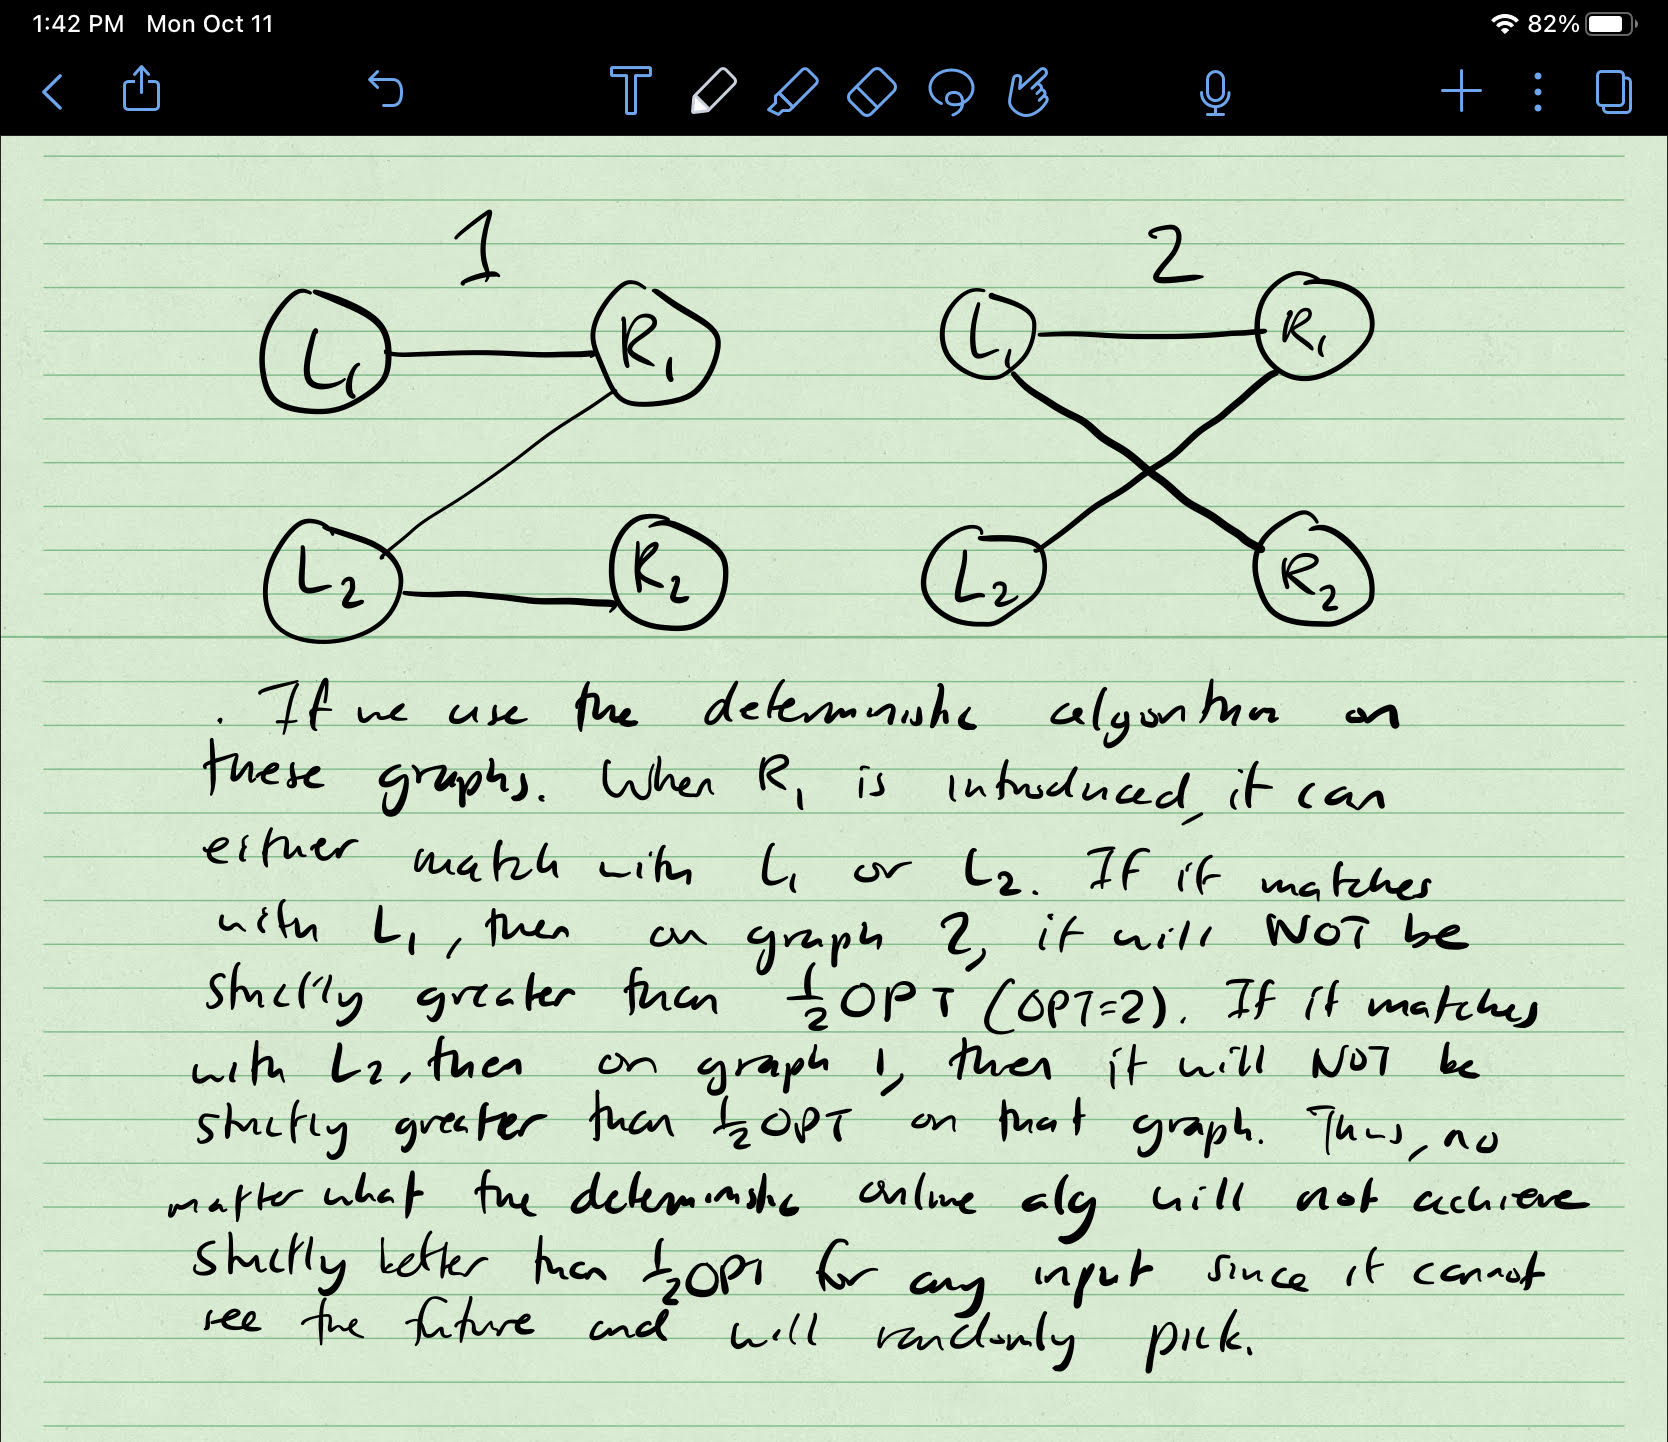 1:42 PM Mon Oct 11 82%
1 2
L1 R1 L1 R1
L2 R2 L2 R2
. If we use the deterministic algorithm on
these graphs. When R1 is introduced, it can
either match with L1 or L2. If it matches
with L1, then on graph 2, it will NOT be
strictly greater than 1/2 OPT (OPT=2). If it matches
with L2, then on graph 1, then it will NOT be
strictly greater than 1/2 OPT on that graph. Thus, no
matter what the deterministic online alg will not achieve
strictly better than 1/2 OPT for any input since it cannot
see the future and will randomly pick.